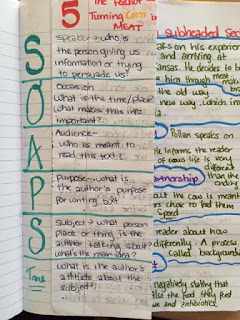 5 The
Turning Corn
MEAT
S
Speaker → who is
the person giving us
information or trying
to persuade us?
O
Occasion
What is the time/place
What makes this info
important?
A
Audience-
who is meant to
read this text?
P
Purpose- what is
the author's purpose
for writing this
S
Subject → what person
place or thing is the
author talking about?
what's the main idea?
Tone
what is the author's
attitude about the
subject?
subheaded Sec
aks on his experien
and arriving at
ansas. He decides to b
him through meat
the old way
new way, which in
Pollan speaks on
He informs the reader
of cows life is very
different than the
ending
out the cow is mean
chose to feed them
Speed
reader about how
differently. A process
called background
negatively stating that
the feed they feed
and antibiotics.